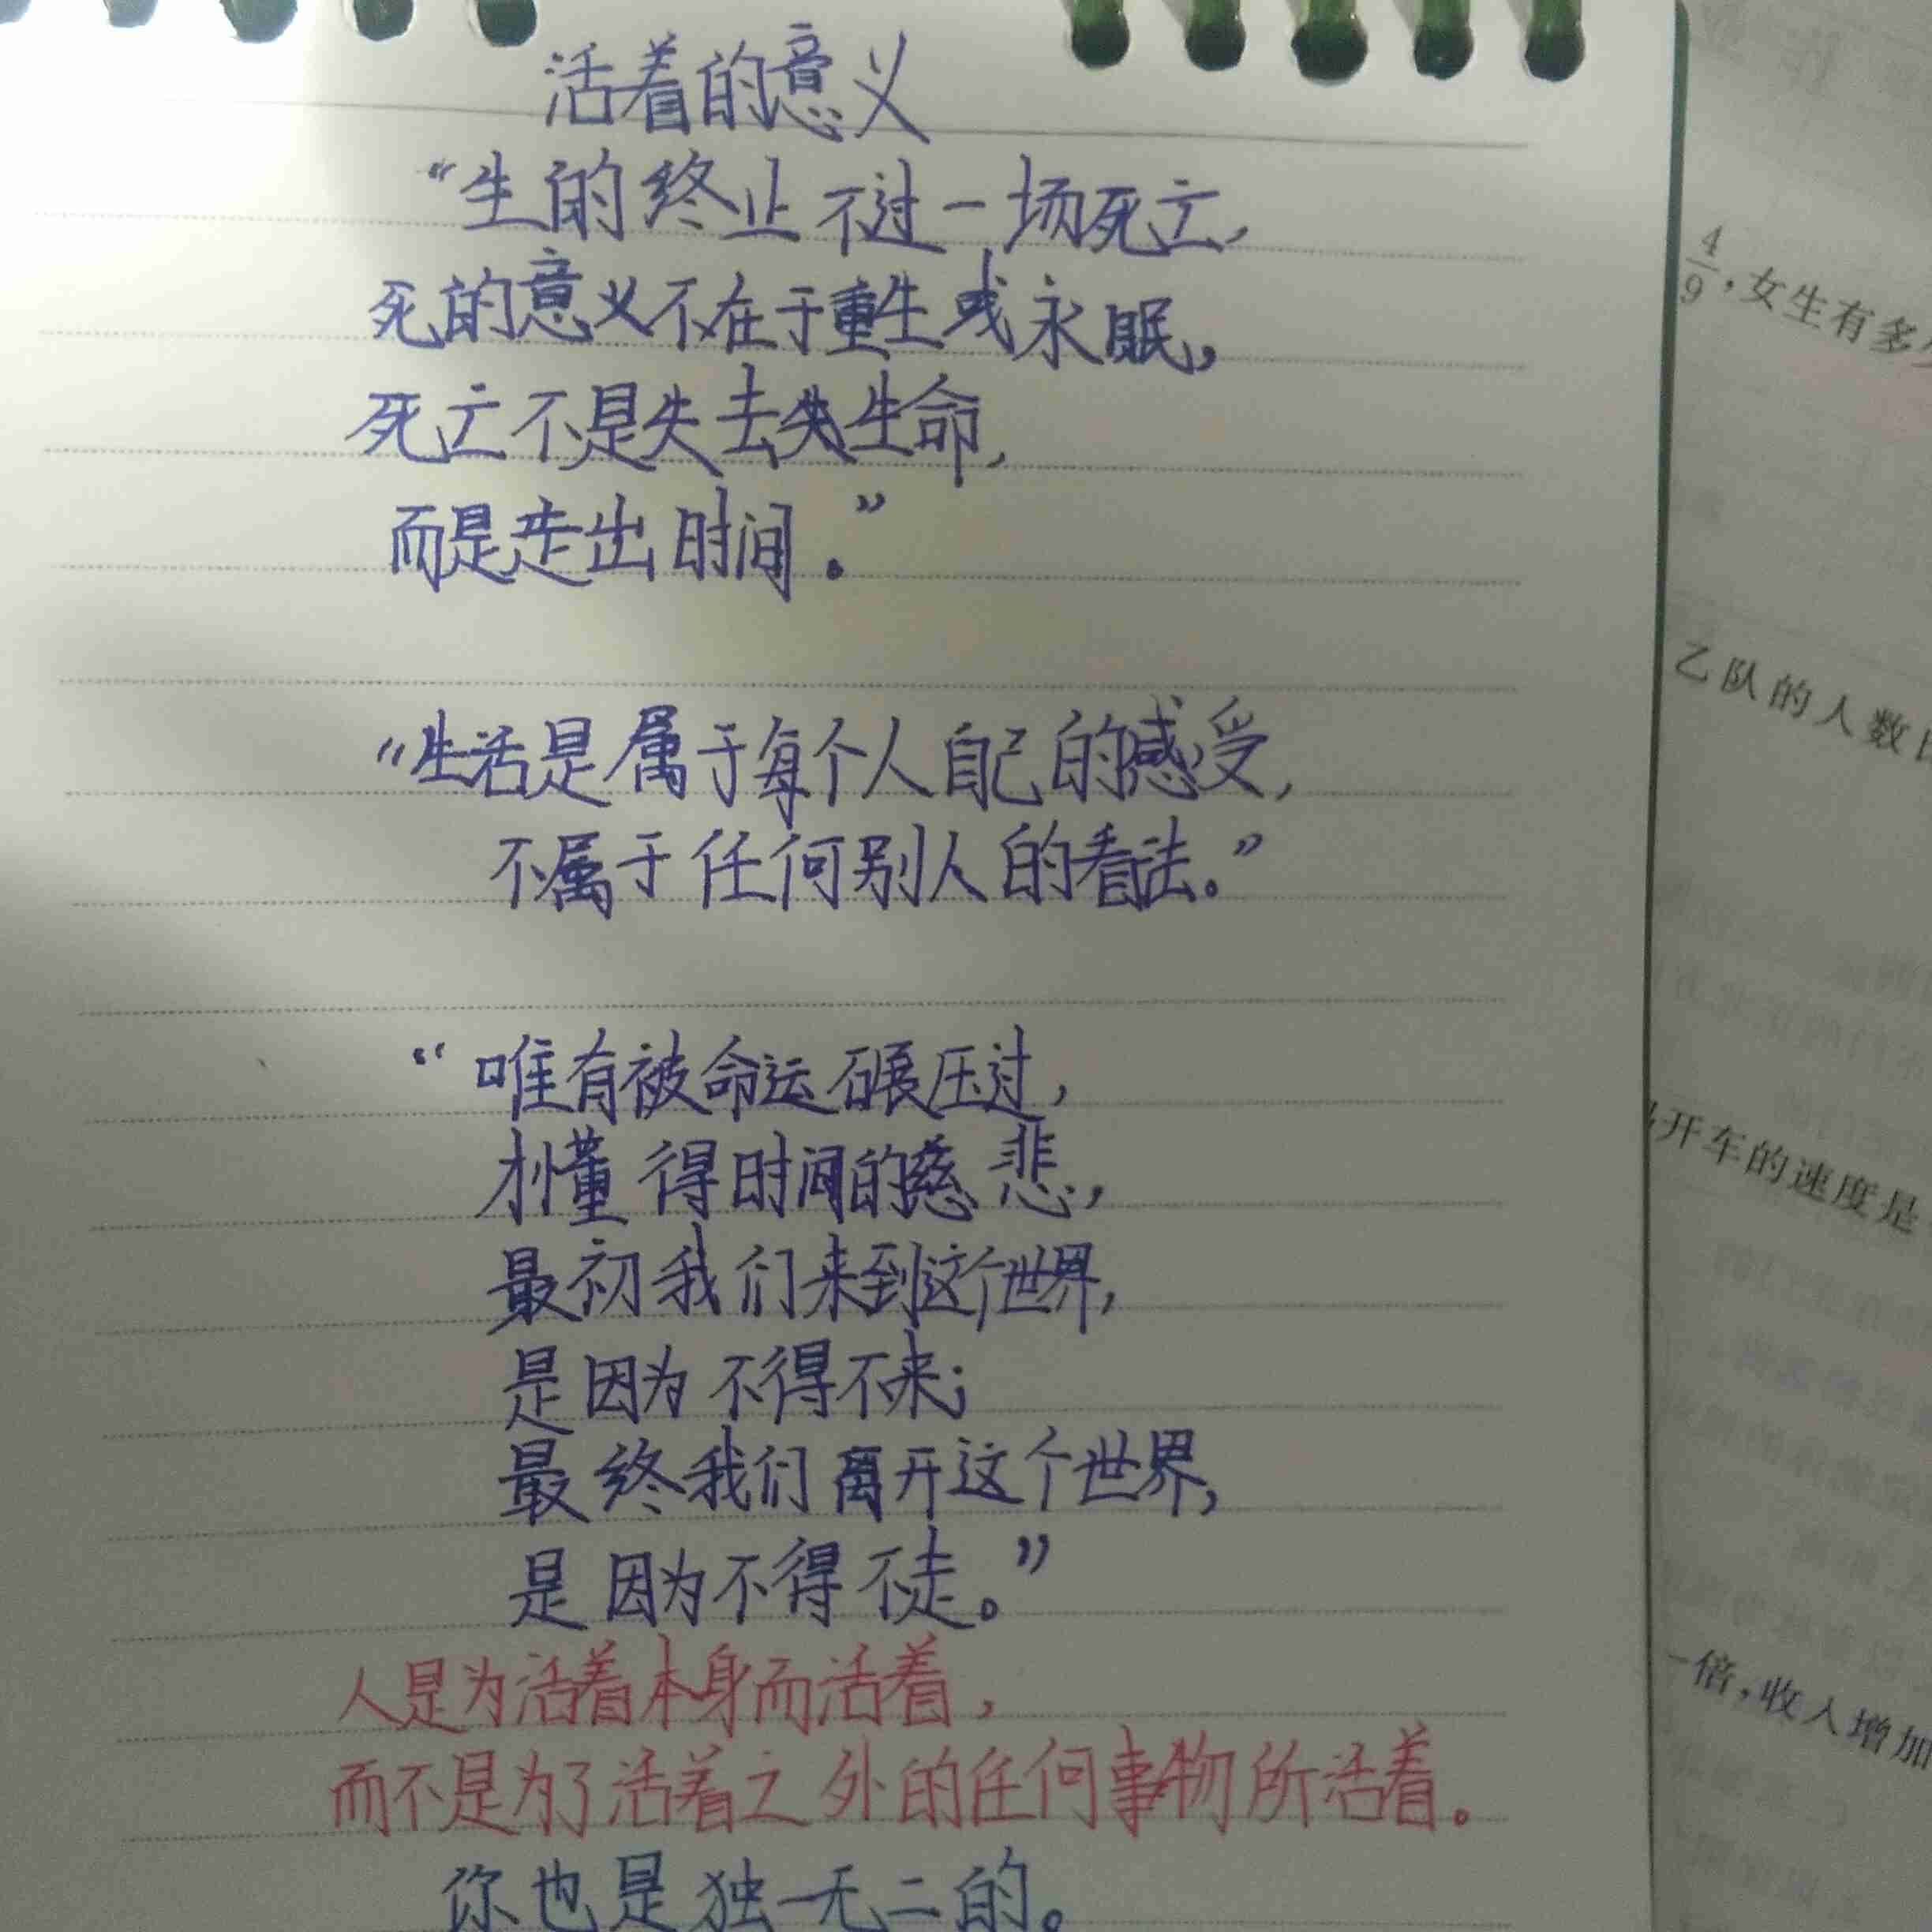 活着的意义
“生的终止不过一场死亡，
死的意义不在于重生或永眠，
死亡不是失去失生命，
而是走出时间。”
“生活是属于每个人自己的感受，
不属于任何别人的看法。”
“唯有被命运碾压过，
才懂得时间的慈悲，
最初我们来到这个世界，
是因为不得不来；
最终我们离开这个世界，
是因为不得不走。”
人是为活着本身而活着，
而不是为了活着之外的任何事物所活着。
你也是独一无二的。
4/9，女生有多
乙队的人数
开车的速度是
一倍，收入增加